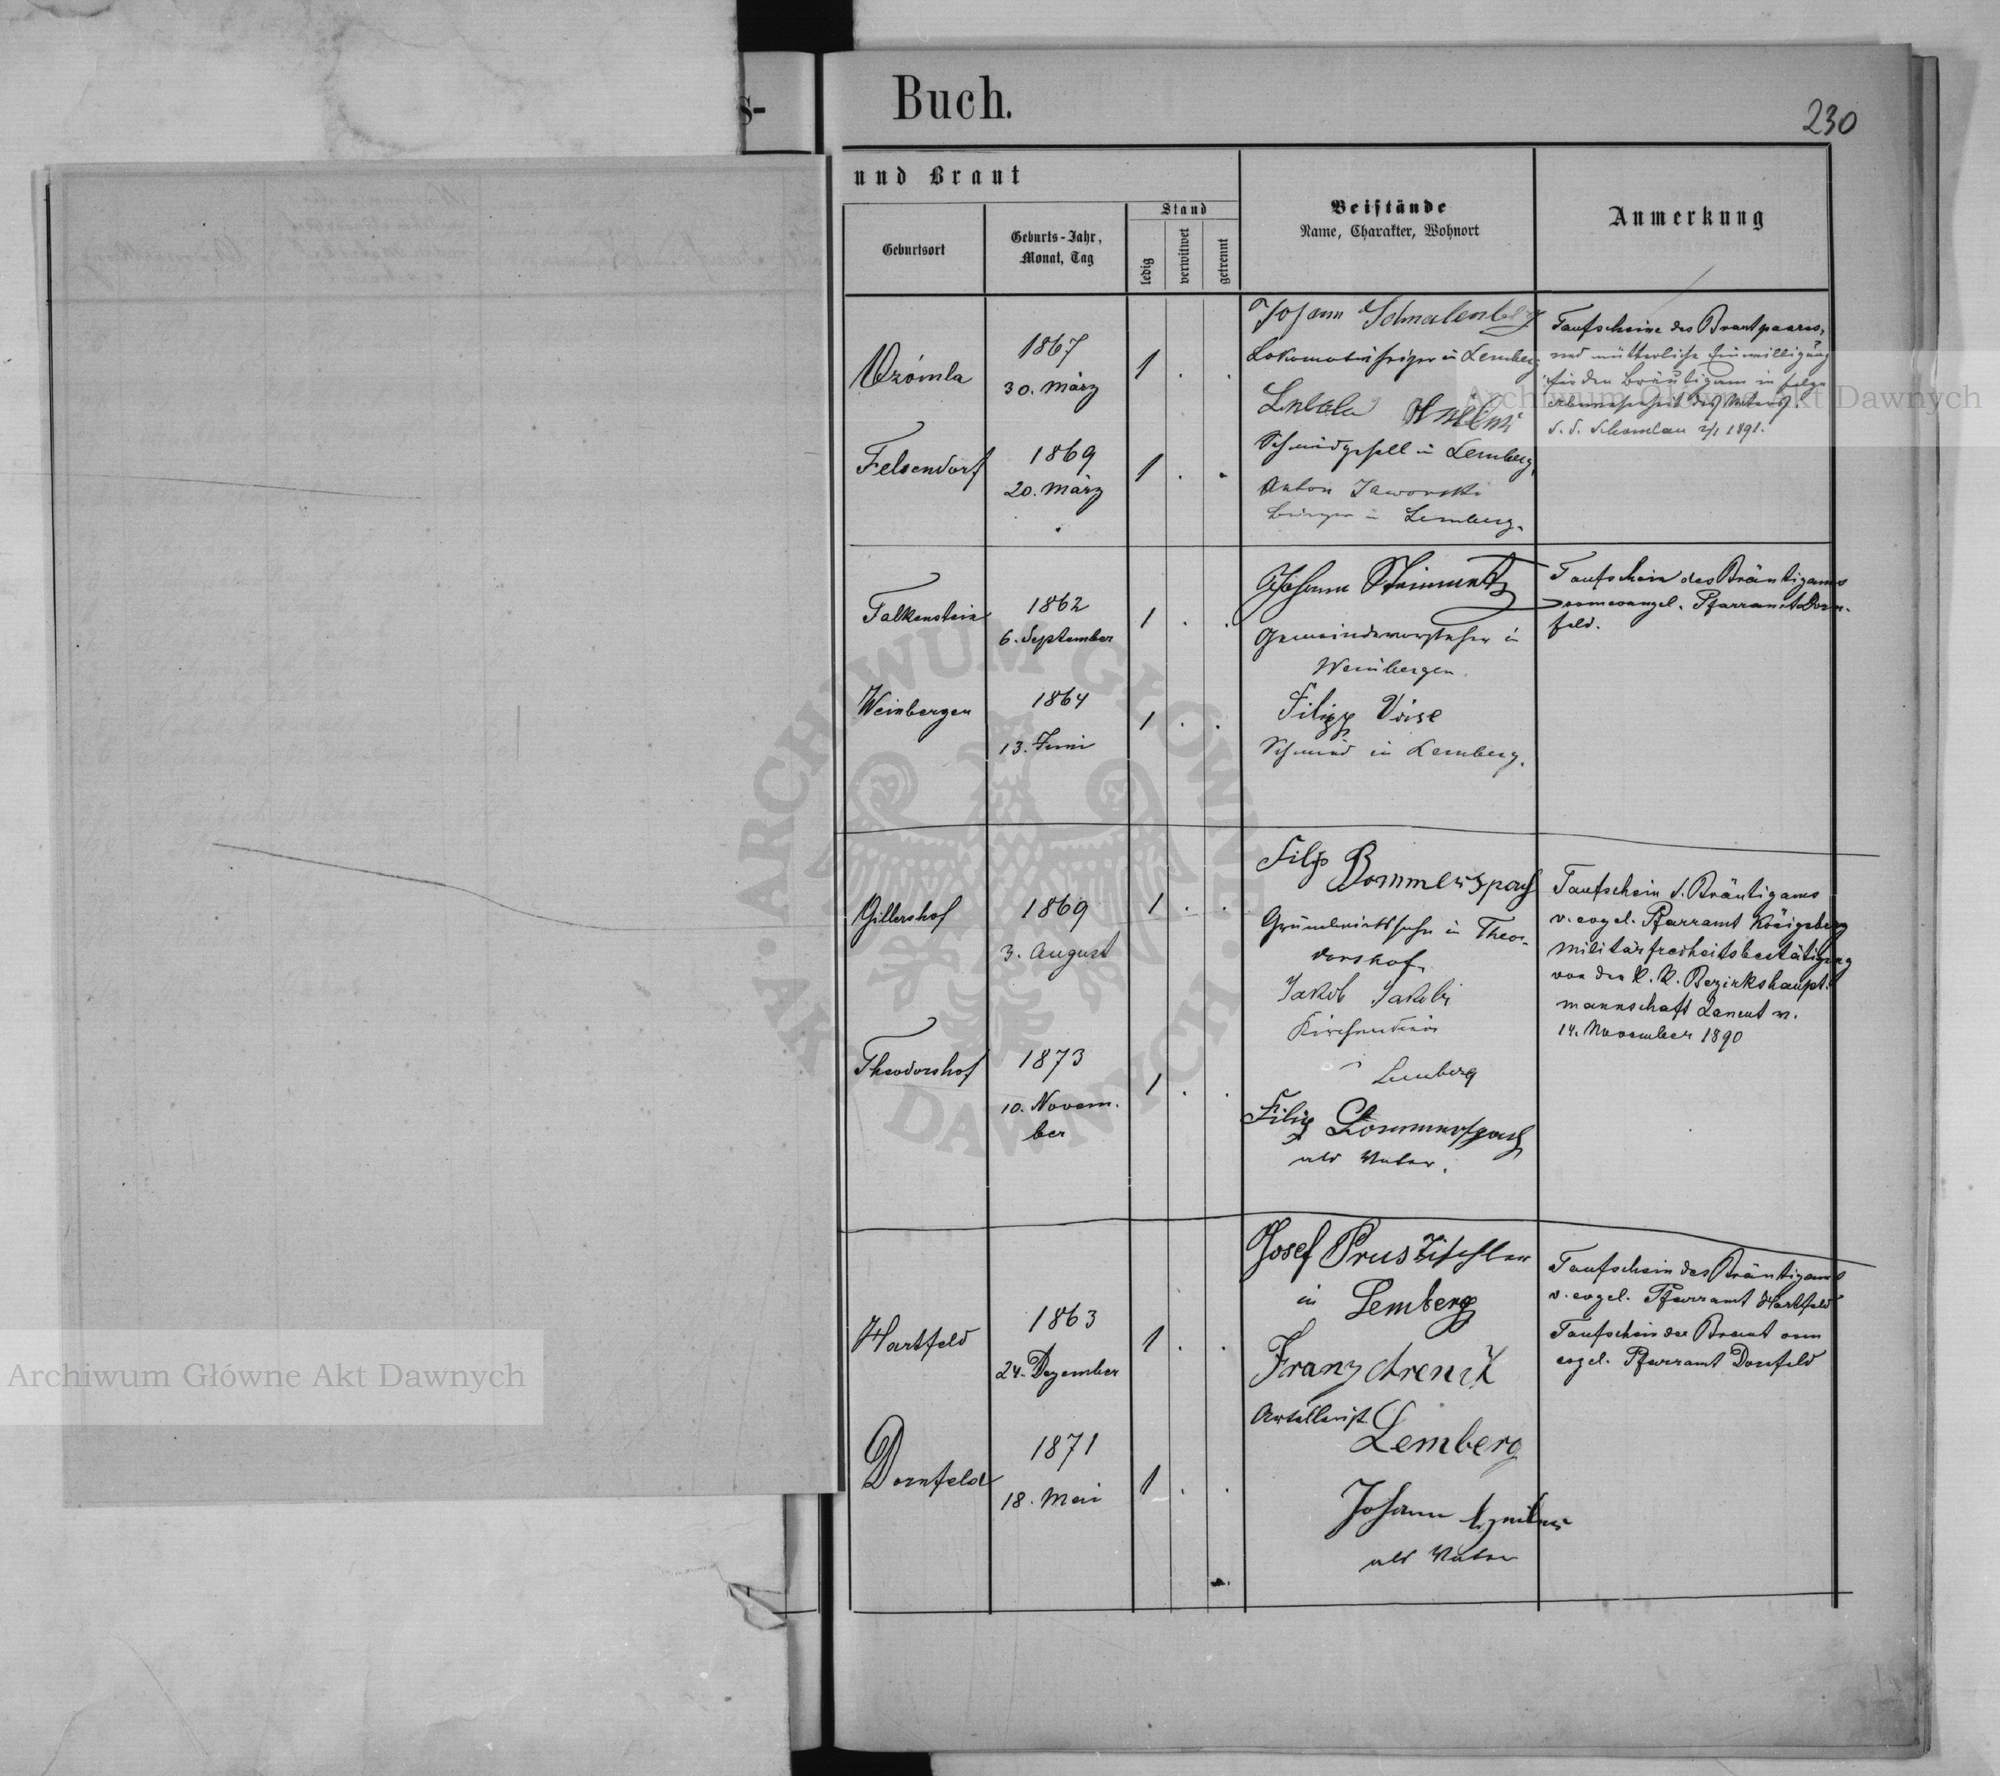 s-
Buch.
230
und Braut
Geburtsort
Geburts-Jahr,
Monat, Tag
Stand
ledig
verwitwet
getrennt
Beistände
Name, Charakter, Wohnort
Anmerkung
1867
30. März
1
Johann Schmalenberg
in Lemberg
Taufscheine des Brautpaares,
und mütterliche Einwilligung
für den Bräutigam in folge
Abwesenheit des Vaters
1891.
Felsendorf
1869
20. März
1
Schmidgesell in Lemberg,
Anton Jaworski
Bürger in Lemberg.
Falkenstein
1862
6. September
1
Johann
Gemeindevorsteher in
Weinbergen.
Taufschein des Bräutigams
vom evangel. Pfarramt Dorn-
feld.
Weinbergen
1864
13. Juni
1
Filipp
Schmied in Lemberg.
Gillershof
1869
3. August
1
Filip Bommerspach
Grundwirtssohn in Theo-
dorshof.
Jakob Jakobi
Kirchendiener
in Lemberg
Taufschein d. Bräutigams
v. evgel. Pfarramt Königsberg
Militärfreiheitsbestätigung
von der k. k. Bezirkshaupt-
mannschaft Lancut v.
14. November 1890
Theodorshof
1873
10. Novem-
ber
1
Filip Bommerspach
als Vater.
Hartfeld
1863
24. Dezember
1
Josef Prus Tischler
in Lemberg
Franz
Artillerist
Lemberg
Taufschein des Bräutigams
v. evgel. Pfarramt Hartfeld
Taufschein der Braut vom
evgel. Pfarramt Dornfeld
Dornfeld
1871
18. Mai
1
Johann
als Vater
Archiwum Główne Akt Dawnych
Archiwum Główne Akt Dawnych
ARCHIWUM GŁÓWNE AKT DAWNYCH